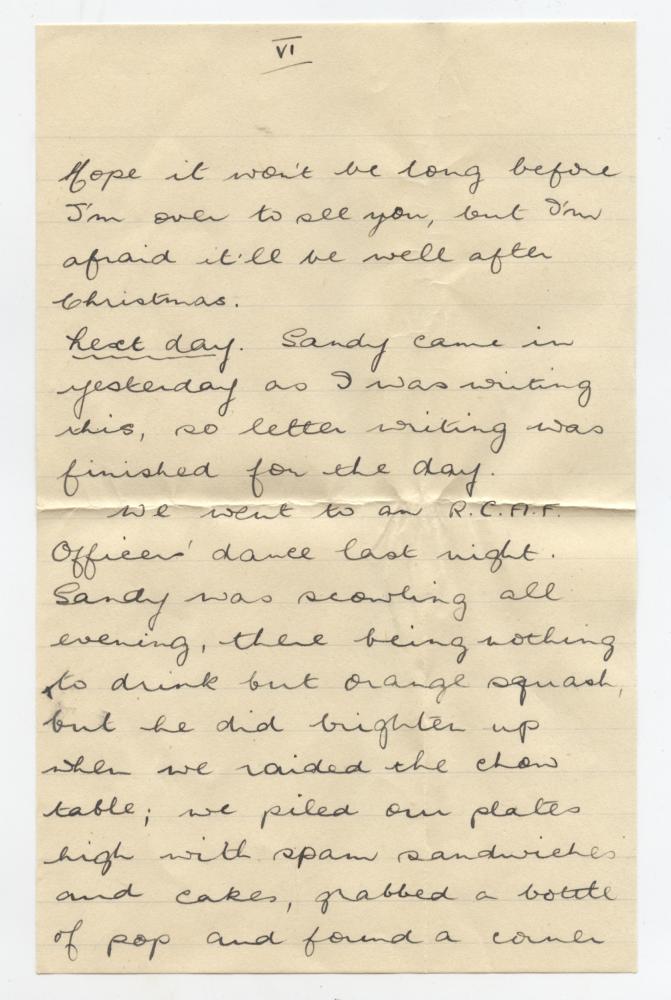 VI
Hope it won't be long before
I'm over to see you, but I'm
afraid it'll be well after
Christmas.
Next day. Sandy came in
yesterday as I was writing
this, so letter writing was
finished for the day.
We went to an R.C.A.F.
Officers' dance last night.
Sandy was scowling all
evening, there being nothing
to drink but orange squash,
but he did brighten up
when we raided the chow
table; we piled our plates
high with spam sandwiches
and cakes, grabbed a bottle
of pop and found a corner